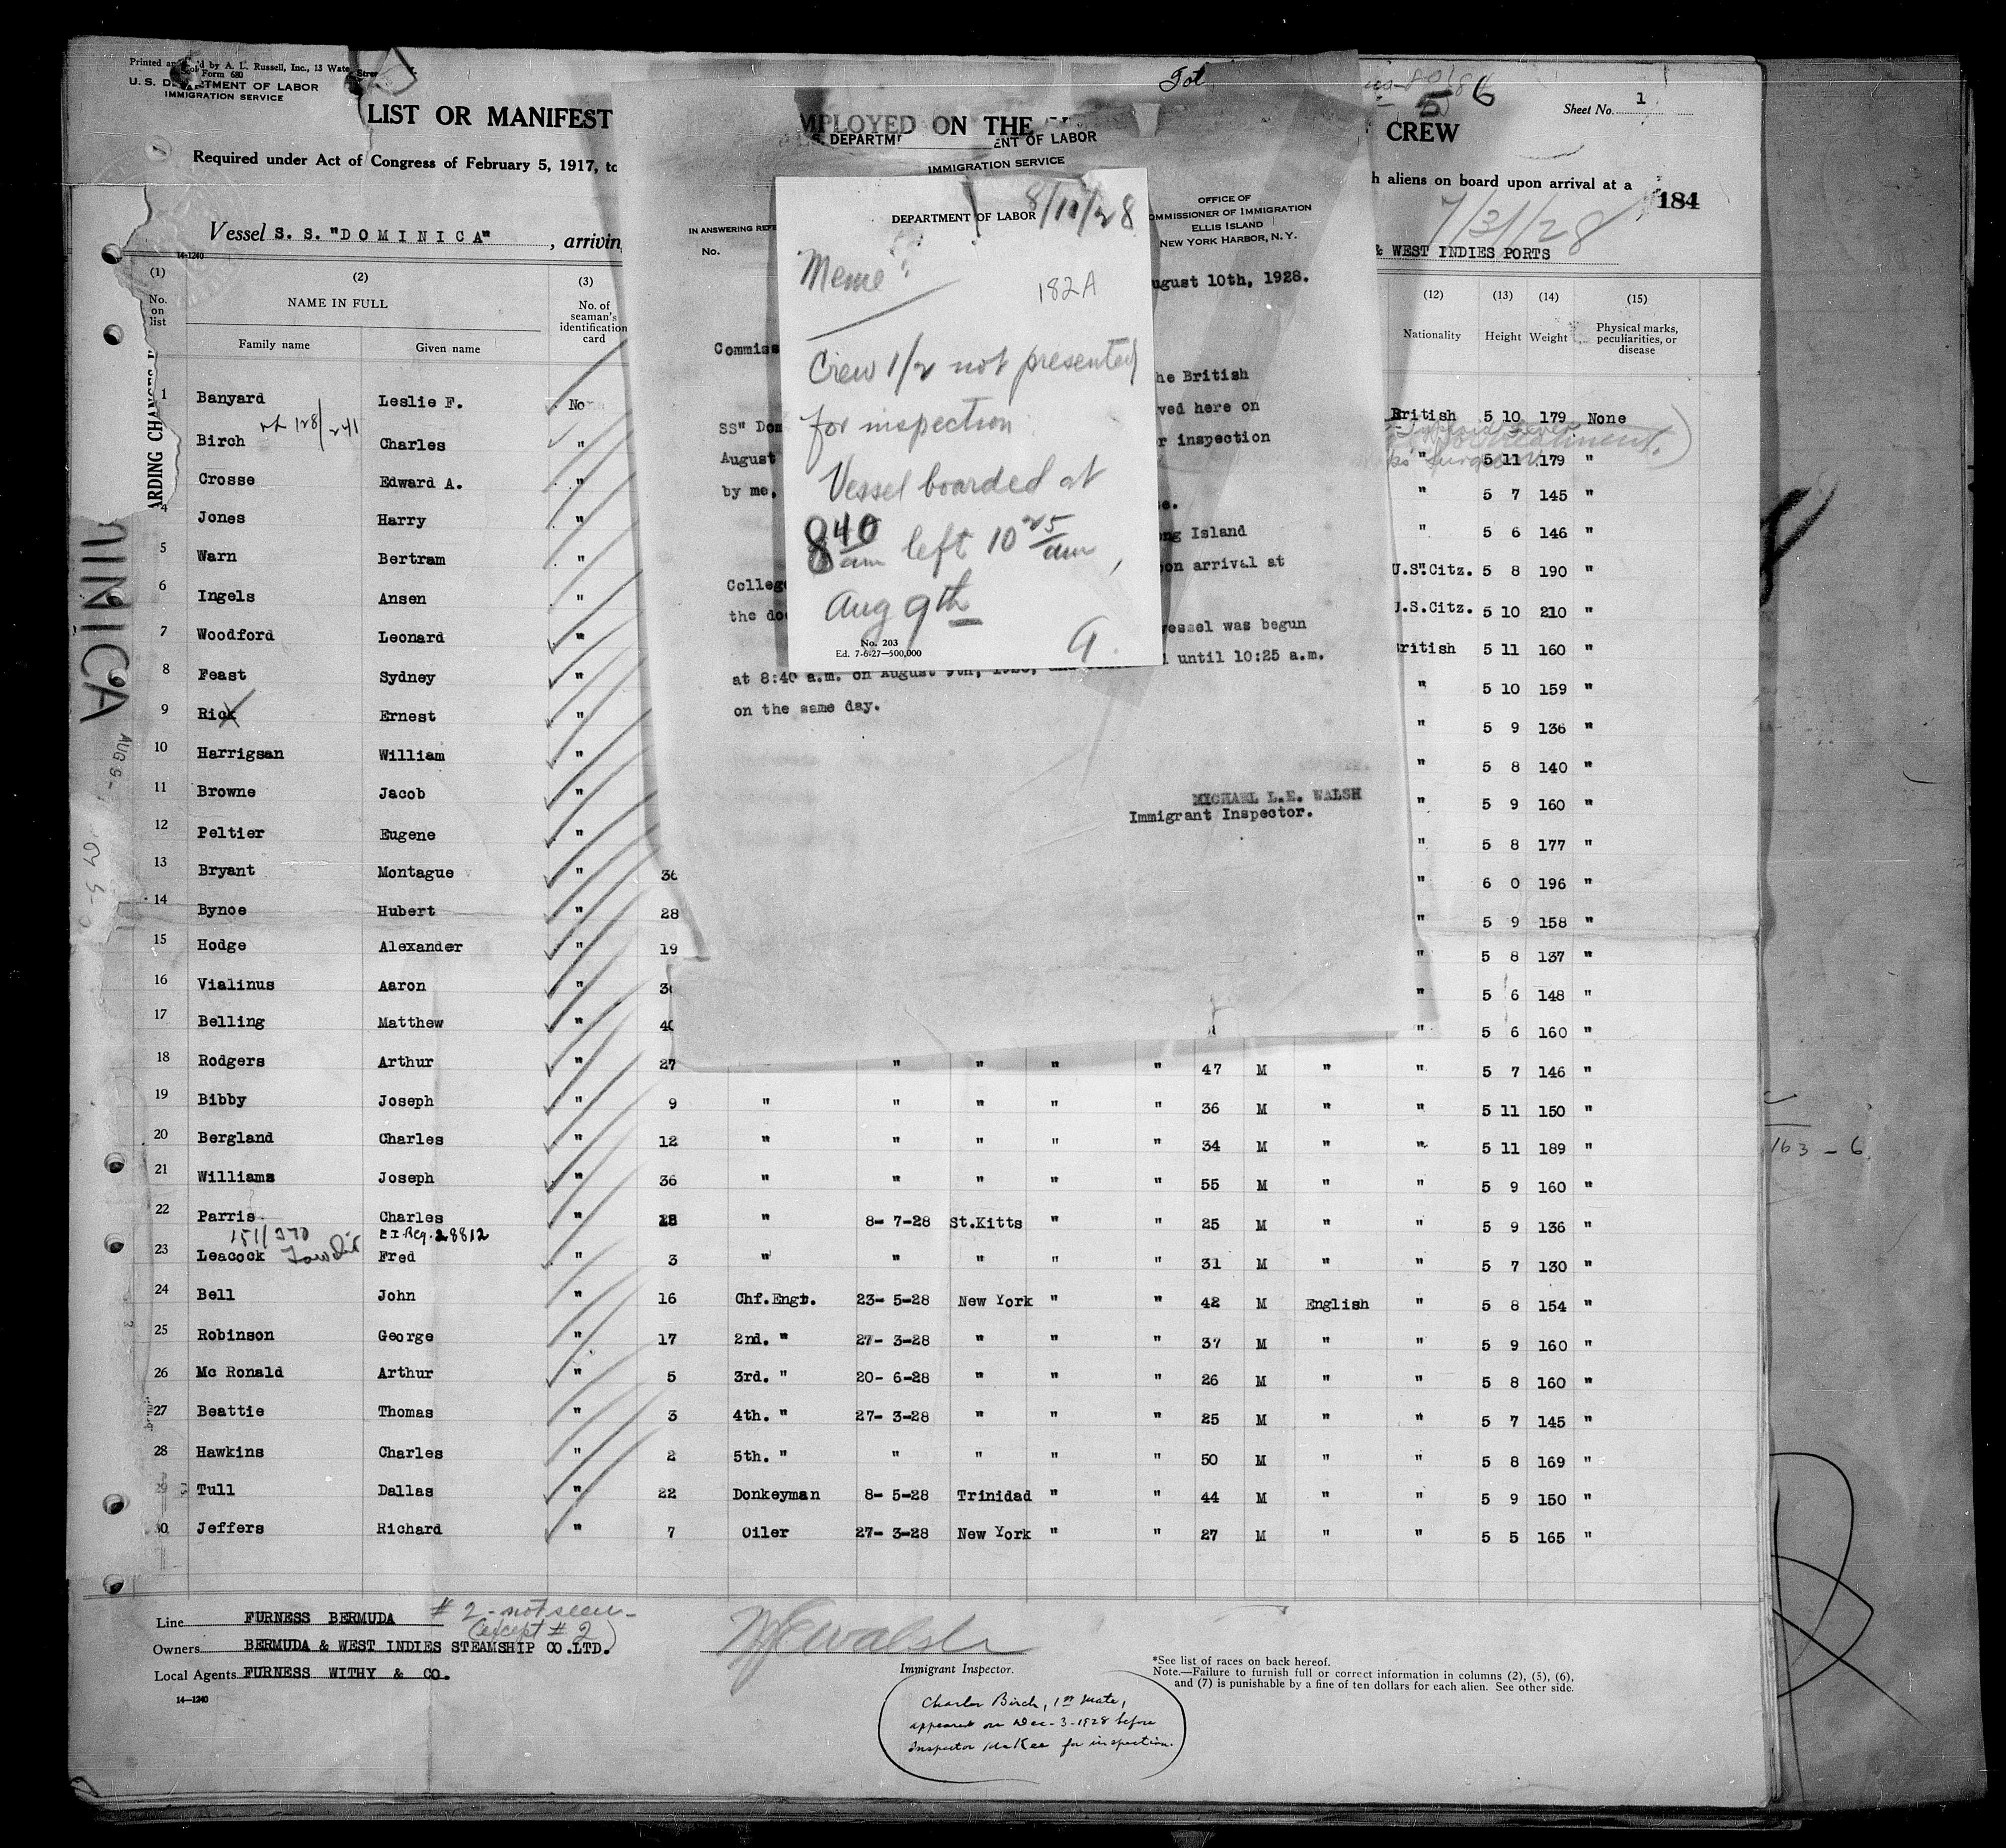 Form 680
U. S. DEPARTMENT OF LABOR
IMMIGRATION SERVICE
LIST OR MANIFEST
MPLOYED ON THE
CREW
Sheet No. 1
Required under Act of Congress of February 5, 1917, to
h aliens on board upon arrival at a
184
7/31/28
Vessel S. S. "DOMINICA" , arriving
& WEST INDIES PORTS
14-1240
(1) No. on list
(2) NAME IN FULL
Family name Given name
(3) No. of seaman's identification card
(12) Nationality
(13) Height
(14) Weight
(15) Physical marks, peculiarities, or disease
DEPARTMENT OF LABOR
IMMIGRATION SERVICE
IN ANSWERING
No.
OFFICE OF
COMMISSIONER OF IMMIGRATION
ELLIS ISLAND
NEW YORK HARBOR, N. Y.
ugust 10th, 1928.
he British
SS" Dom
ved here on
August
r inspection
by me,
ng Island
Colleg
on arrival at
the do
vessel was begun
at 8:40 a.m. on August 9th,
until 10:25 a.m.
on the same day.
MICHAEL L.E. WALSH
Immigrant Inspector.
DEPARTMENT OF LABOR
8/10/28
182A
Crew 1/2 not presented
for inspection
Vessel boarded at
8 40 am left 10 25 am,
Aug 9th
No. 203
Ed. 7-6-27—500,000
1 Banyard Leslie F. None British 5 10 179 None
Birch Charles " " 5 11 179 "
Crosse Edward A. " " 5 7 145 "
4 Jones Harry " " 5 6 146 "
5 Warn Bertram " U.S. Citz. 5 8 190 "
6 Ingels Ansen " U.S.Citz. 5 10 210 "
7 Woodford Leonard " British 5 11 160 "
8 Feast Sydney " " 5 10 159 "
9 Rick Ernest " " 5 9 136 "
10 Harrigsan William " " 5 8 140 "
11 Browne Jacob " " 5 9 160 "
12 Peltier Eugene " " 5 8 177 "
13 Bryant Montague " 36 " 6 0 196 "
14 Bynoe Hubert " 28 " 5 9 158 "
15 Hodge Alexander " 19 " 5 8 137 "
16 Vialinus Aaron " " 5 6 148 "
17 Belling Matthew " 40 " 5 6 160 "
18 Rodgers Arthur " 27 " " " " 47 M " " 5 7 146 "
19 Bibby Joseph " 9 " " " " " 36 M " " 5 11 150 "
20 Bergland Charles " 12 " " " " " 34 M " " 5 11 189 "
21 Williams Joseph " 36 " " " " " 55 M " " 5 9 160 "
22 Parris Charles " " 8- 7-28 St.Kitts " " 25 M " " 5 9 136 "
E I Reg. 28812
23 Leacock Fred " 3 " " " " " 31 M " " 5 7 130 "
24 Bell John " 16 Chf.Engr. 23- 5-28 New York " " 42 M English " 5 8 154 "
25 Robinson George " 17 2nd. " 27- 3-28 " " " 37 M " " 5 9 160 "
26 Mc Ronald Arthur " 5 3rd. " 20- 6-28 " " " 26 M " " 5 8 160 "
27 Beattie Thomas " 3 4th. " 27- 3-28 " " " 25 M " " 5 7 145 "
28 Hawkins Charles " 2 5th. " " " " " 50 M " " 5 8 169 "
29 Tull Dallas " 22 Donkeyman 8- 5-28 Trinidad " " 44 M " " 5 9 150 "
30 Jeffers Richard " 7 Oiler 27- 3-28 New York " " 27 M " " 5 5 165 "
Line FURNESS BERMUDA
# 2 - not seen -
(except # 2)
Owners BERMUDA & WEST INDIES STEAMSHIP CO.LTD.
Local Agents FURNESS WITHY & CO.
14—1240
Immigrant Inspector.
*See list of races on back hereof.
Note.—Failure to furnish full or correct information in columns (2), (5), (6),
and (7) is punishable by a fine of ten dollars for each alien. See other side.
Charles Birch, 1st Mate,
appeared on Dec-3-1928 before
Inspector McKee for inspection.
163 - 6